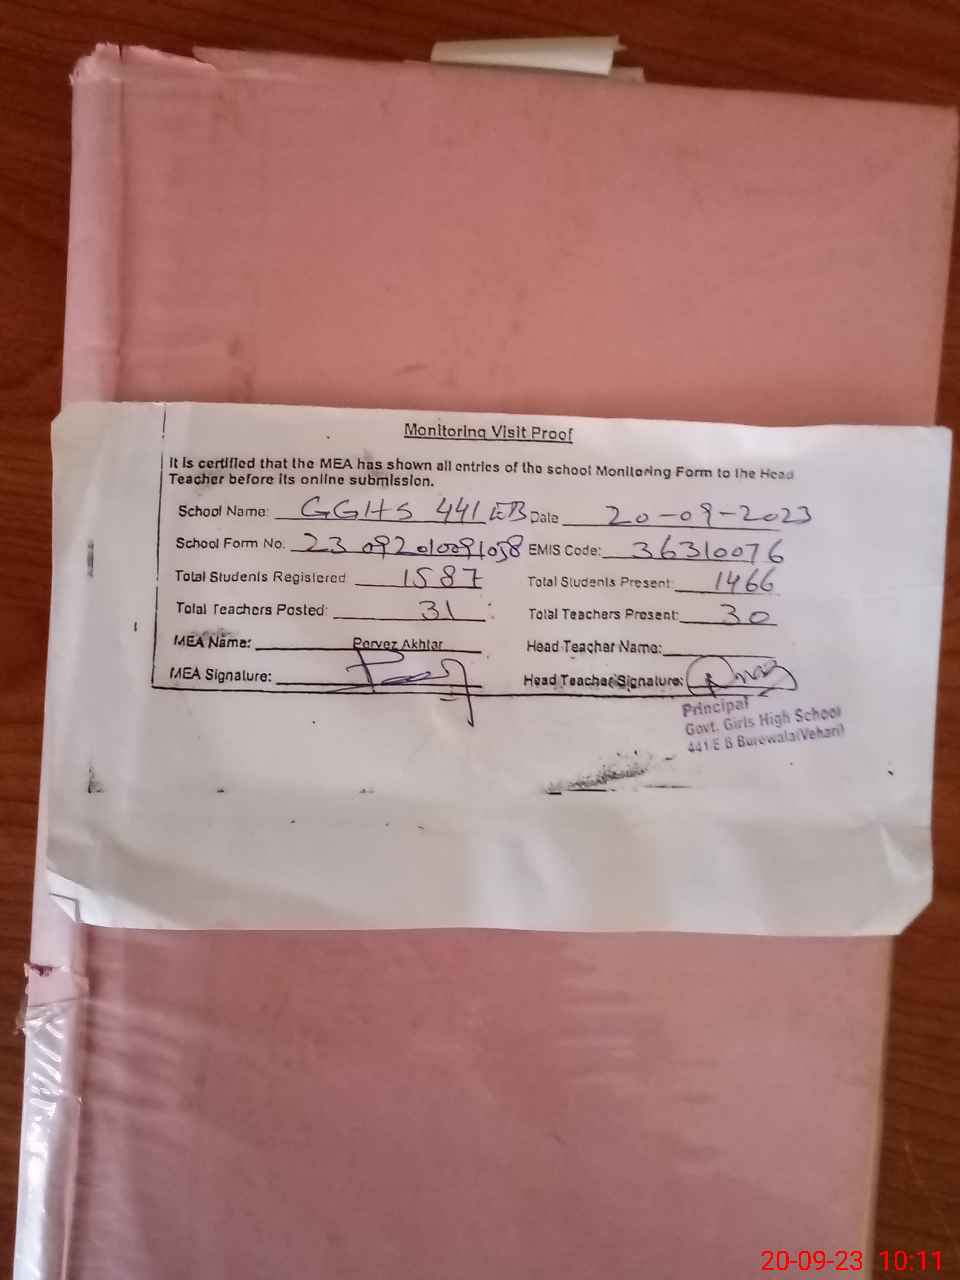 Monitoring Visit Proof
It is certified that the MEA has shown all entries of the school Monitoring Form to the Head
Teacher before its online submission.
School Name: GGHS 441 EB Date 20-09-2023
School Form No. 23 092010091038 EMIS Code: 36310076
Total Students Registered 1587 Total Students Present: 1466
Total Teachers Posted: 31 Total Teachers Present: 30
MEA Name: Pervez Akhtar Head Teacher Name:
MEA Signature: Head Teacher Signature:
Principal
Govt. Girls High School
441/E B Burewala(Vehari)
20-09-23 10:11